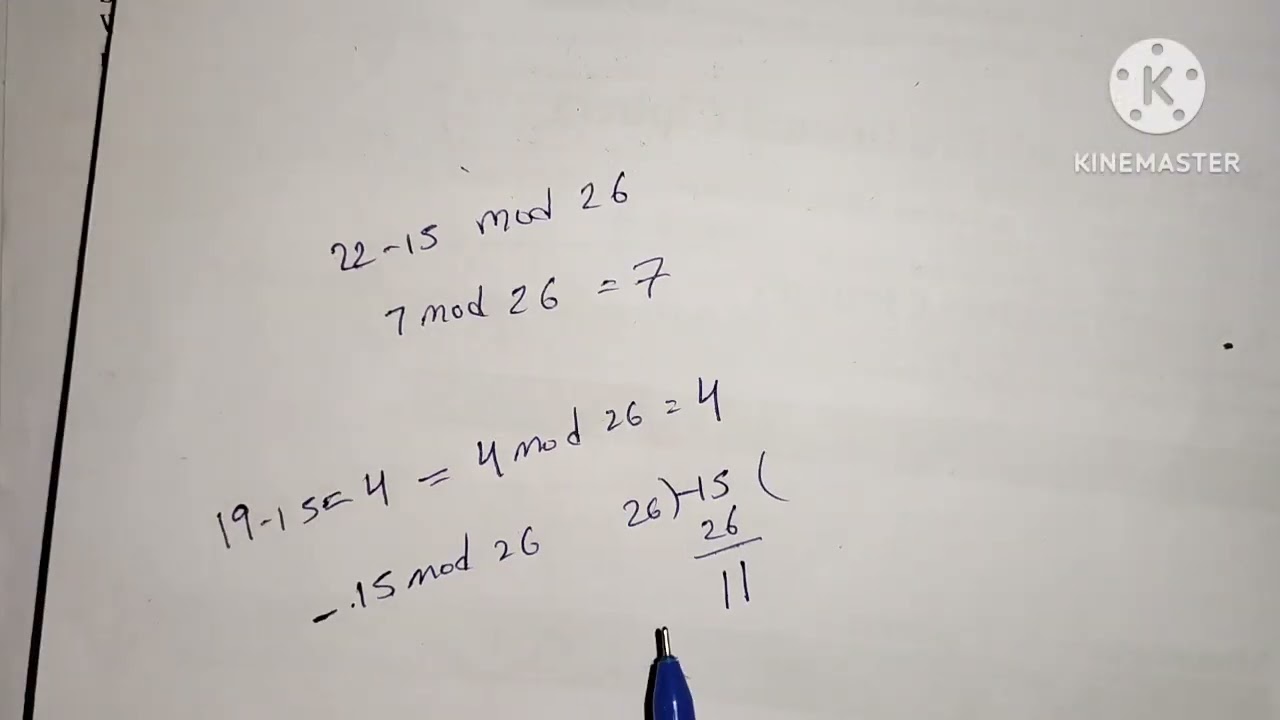 KINEMASTER
22-15 mod 26
7 mod 26 = 7
19-15= 4 = 4 mod 26 = 4
-15 mod 26
26)-15(
26
11